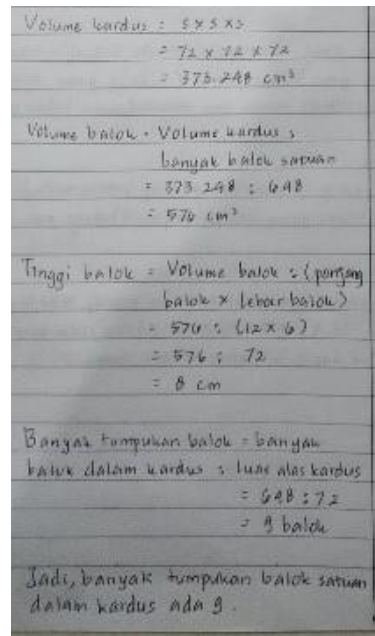 Volume kardus = s x s x s
= 72 x 72 x 72
= 373.248 cm³
Volume balok = Volume kardus :
banyak balok satuan
= 373.248 : 648
= 576 cm³
Tinggi balok = Volume balok : (panjang
balok x lebar balok)
= 576 : (12 x 6)
= 576 : 72
= 8 cm
Banyak tumpukan balok = banyak
balok dalam kardus : luas alas kardus
= 648 : 72
= 9 balok
Jadi, banyak tumpukan balok satuan
dalam kardus ada 9.